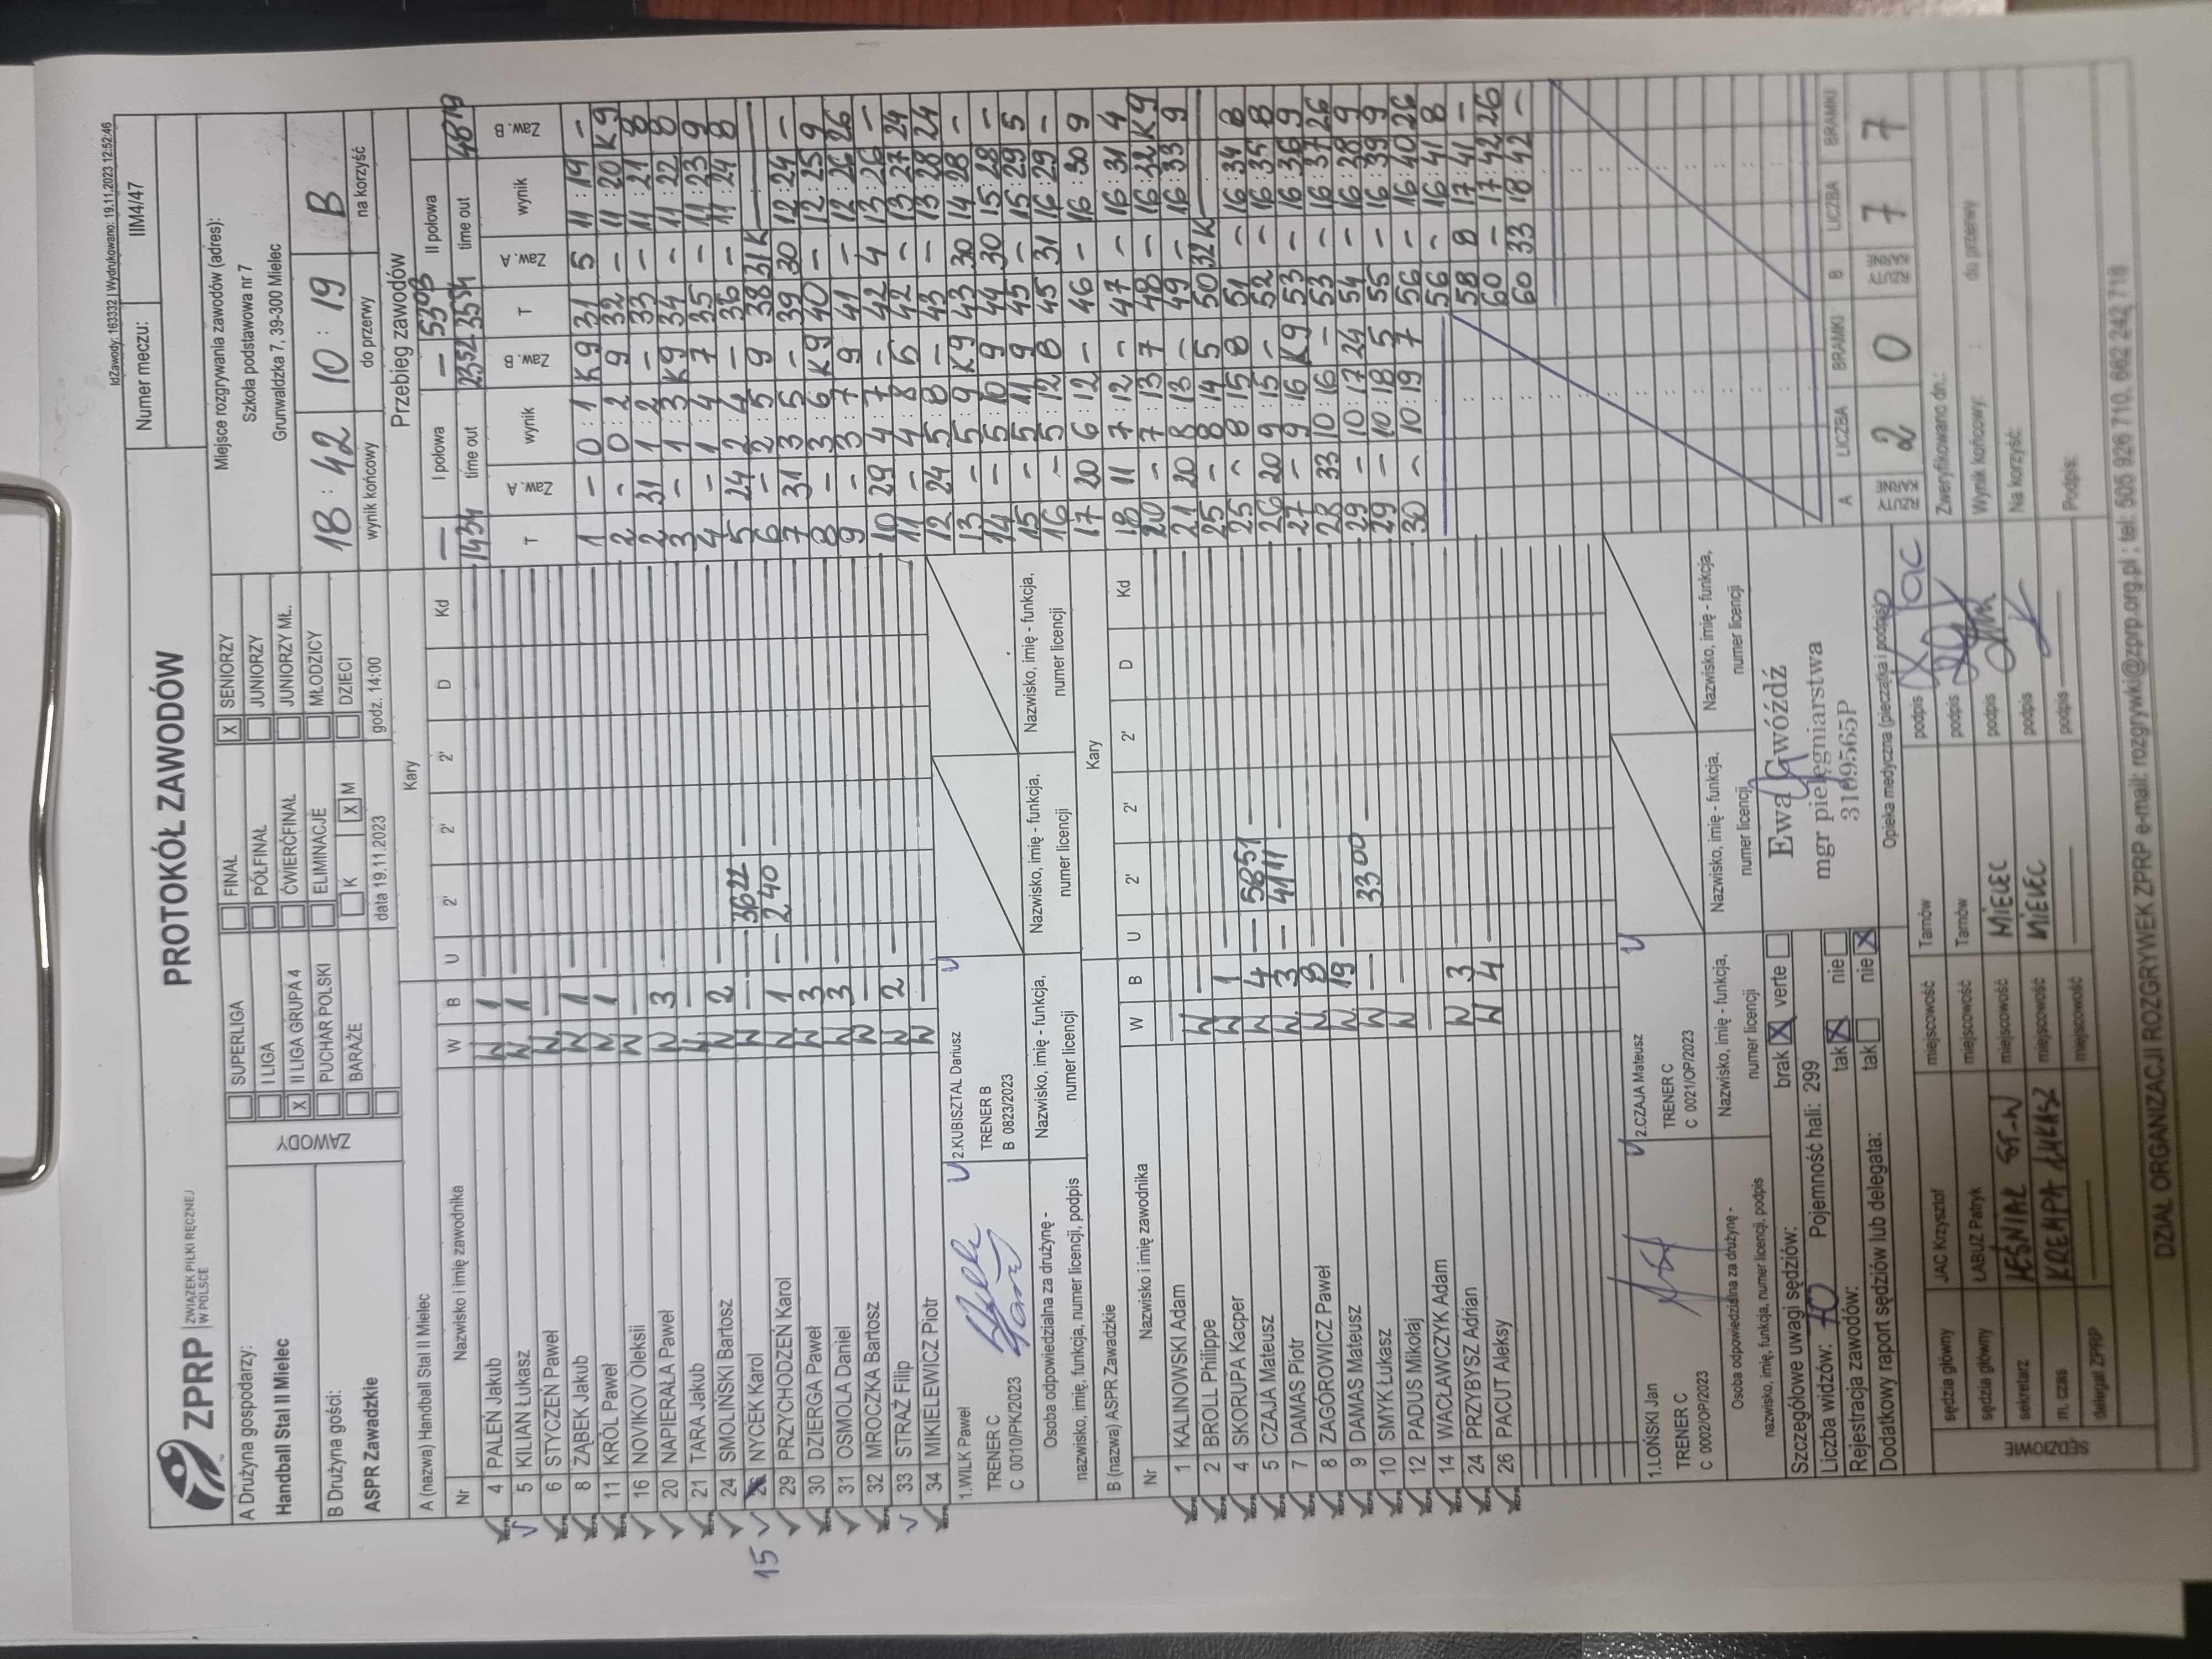 IdZawody: 163332 | Wydrukowano: 19.11.2023 12:52:46
ZPRP ZWIĄZEK PIŁKI RĘCZNEJ W POLSCE
PROTOKÓŁ ZAWODÓW
Numer meczu: IIM4/47
A Drużyna gospodarzy:
Handball Stal II Mielec
B Drużyna gości:
ASPR Zawadzkie
ZAWODY
SUPERLIGA
I LIGA
X II LIGA GRUPA 4
PUCHAR POLSKI
BARAŻE
FINAŁ
PÓŁFINAŁ
ĆWIERĆFINAŁ
ELIMINACJE
K X M
data 19.11.2023
X SENIORZY
JUNIORZY
JUNIORZY MŁ.
MŁODZICY
DZIECI
godz. 14:00
Miejsce rozgrywania zawodów (adres):
Szkoła podstawowa nr 7
Grunwaldzka 7, 39-300 Mielec
18 : 42 10 : 19 B
wynik końcowy do przerwy na korzyść
A (nazwa) Handball Stal II Mielec Kary
Nr Nazwisko i imię zawodnika W B U 2' 2' 2' D Kd
4 PALEŃ Jakub W 1
5 KILIAN Łukasz W 1
6 STYCZEŃ Paweł W —
8 ZĄBEK Jakub W 1
11 KRÓL Paweł W 1
16 NOVIKOV Oleksii W —
20 NAPIERAŁA Paweł W 3
21 TARA Jakub W —
24 SMOLIŃSKI Bartosz W 2
15 NYCEK Karol W — — 3622 —
29 PRZYCHODZEŃ Karol W 1 — 240 —
30 DZIERGA Paweł W 3
31 OSMOLA Daniel W 3
32 MROCZKA Bartosz W —
33 STRAŻ Filip W 2
34 MIKIELEWICZ Piotr W —
1.WILK Paweł
TRENER C
C 0010/PK/2023
2.KUBISZTAL Dariusz
TRENER B
B 0823/2023
Osoba odpowiedzialna za drużynę -
nazwisko, imię, funkcja, numer licencji, podpis
Nazwisko, imię - funkcja,
numer licencji
Nazwisko, imię - funkcja,
numer licencji
Nazwisko, imię - funkcja,
numer licencji
B (nazwa) ASPR Zawadzkie Kary
Nr Nazwisko i imię zawodnika W B U 2' 2' 2' D Kd
1 KALINOWSKI Adam
2 BROLL Philippe W —
4 SKORUPA Kacper W 1
5 CZAJA Mateusz W 4 — 5851 —
7 DAMAS Piotr W 3 — 4111 —
8 ZAGOROWICZ Paweł W 8
9 DAMAS Mateusz W 19
10 SMYK Łukasz W — 3300 —
12 PADUS Mikołaj W —
14 WACŁAWCZYK Adam
24 PRZYBYSZ Adrian W 3
26 PACUT Aleksy W 4
1.LOŃSKI Jan
TRENER C
C 0002/OP/2023
2.CZAJA Mateusz
TRENER C
C 0021/OP/2023
Osoba odpowiedzialna za drużynę -
nazwisko, imię, funkcja, numer licencji, podpis
Nazwisko, imię - funkcja,
numer licencji
Nazwisko, imię - funkcja,
numer licencji
Nazwisko, imię - funkcja,
numer licencji
Szczegółowe uwagi sędziów: brak X verte
Liczba widzów: 70 Pojemność hali: 299
Rejestracja zawodów: tak X nie
Dodatkowy raport sędziów lub delegata: tak nie X
Ewa Gwóźdź
mgr pielęgniarstwa
3109565P
Opieka medyczna (pieczątka i podpis)
SĘDZIOWIE
sędzia główny JAC Krzysztof miejscowość Tarnów podpis
sędzia główny ŁABUZ Patryk miejscowość Tarnów podpis
sekretarz miejscowość MIELEC podpis
m. czas KREMPA ŁUKASZ miejscowość MIELEC podpis
delegat ZPRP — miejscowość — podpis —
Przebieg zawodów
I połowa II połowa
— — 5303
time out time out
1431 2352 3554 4819
T Zaw. A wynik Zaw. B T Zaw. A wynik Zaw. B
1 – 0:1 K9 31 5 11:19 –
2 – 0:2 9 32 – 11:20 K9
2 31 1:2 – 33 – 11:21 8
3 – 1:3 K9 34 – 11:22 8
4 – 1:4 7 35 – 11:23 9
5 24 2:4 – 36 – 11:24 8
6 – 2:5 9 38 31K
7 31 3:5 – 39 30 12:24 –
8 – 3:6 K9 40 – 12:25 9
9 – 3:7 9 41 – 12:26 26
10 29 4:7 – 42 4 13:26 –
11 – 4:8 5 42 – 13:27 24
12 24 5:8 – 43 – 13:28 24
13 – 5:9 K9 43 30 14:28 –
14 – 5:10 9 44 30 15:28 –
15 – 5:11 9 45 – 15:29 5
16 – 5:12 8 45 31 16:29 –
17 20 6:12 – 46 – 16:30 9
18 11 7:12 – 47 – 16:31 4
20 – 7:13 7 48 – 16:32 K9
21 20 8:13 – 49 – 16:33 9
25 – 8:14 5 50 32K
25 – 8:15 8 51 – 16:34 8
26 20 9:15 – 52 – 16:35 8
27 – 9:16 K9 53 – 16:36 9
28 33 10:16 – 53 – 16:37 26
29 – 10:17 24 54 – 16:38 9
29 – 10:18 5 55 – 16:39 9
30 – 10:19 7 56 – 16:40 26
56 – 16:41 8
58 8 17:41 –
60 – 17:42 26
60 33 18:42 –
A LICZBA BRAMKI B LICZBA BRAMKI
RZUTY KARNE 2 0 RZUTY KARNE 7 7
Zweryfikowano dn.:
Wynik końcowy: : do przerwy
Na korzyść:
Podpis:
DZIAŁ ORGANIZACJI ROZGRYWEK ZPRP e-mail: rozgrywki@zprp.org.pl ; tel: 505 926 710, 662 242 718